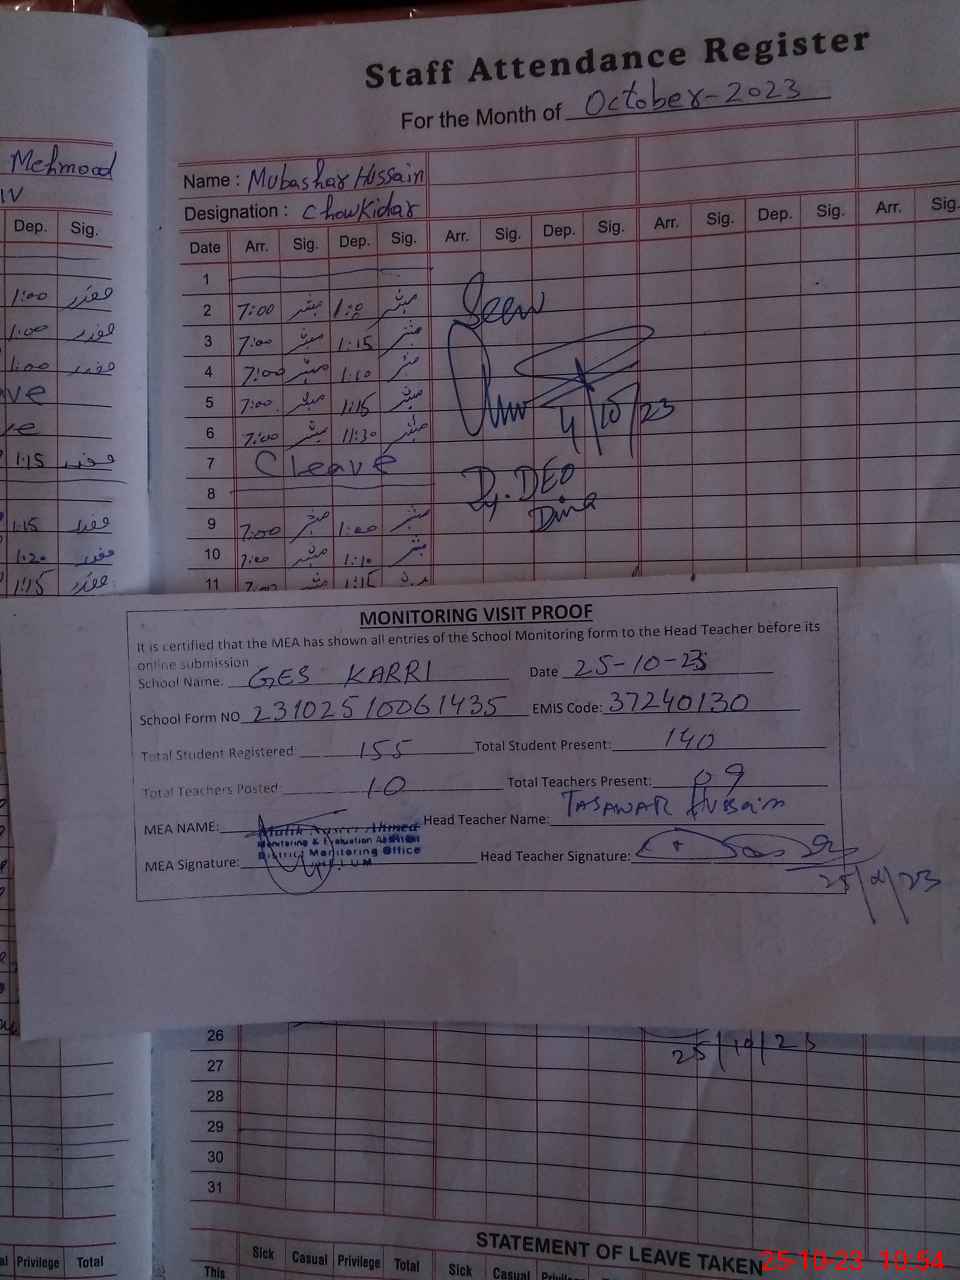 Staff Attendance Register
For the Month of October-2023
Mehmood
IV
Name : Mubashar Hussain
Designation : Chowkidar
Dep. Sig.
Date Arr. Sig. Dep. Sig. Arr. Sig. Dep. Sig. Arr. Sig. Dep. Sig. Arr. Sig.
1
1:00
2 7:00 مبشر مبشر
Seen
1:00
3 7:00 مبشر 1:15 مبشر
1:00
4 7:00 مبشر 1:10 مبشر
ve
5 7:00 مبشر 1:15 مبشر
4/10/23
6 7:00 مبشر 11:30 مبشر
1:15
7 C leave
8
Dy. DEO
Dina
1:15
9 7:00 مبشر 1:00 مبشر
1:20
10 7:00 مبشر 1:10 مبشر
1:15
11 7:00 1:15
MONITORING VISIT PROOF
It is certified that the MEA has shown all entries of the School Monitoring form to the Head Teacher before its
online submission
School Name. GES KARRI Date 25-10-23
School Form NO 23102510061435 EMIS Code: 37240130
Total Student Registered: 155 Total Student Present: 140
Total Teachers Posted: 10 Total Teachers Present: 09
MEA NAME: Head Teacher Name: TASAWAR Hussain
Monitoring & Evaluation Assistant
District Monitoring Office
JHELUM
MEA Signature: Head Teacher Signature:
26
25/10/23
27
28
29
30
31
STATEMENT OF LEAVE TAKEN
Privilege Total
This Sick Casual Privilege Total Sick Casual
25-10-23 10:54